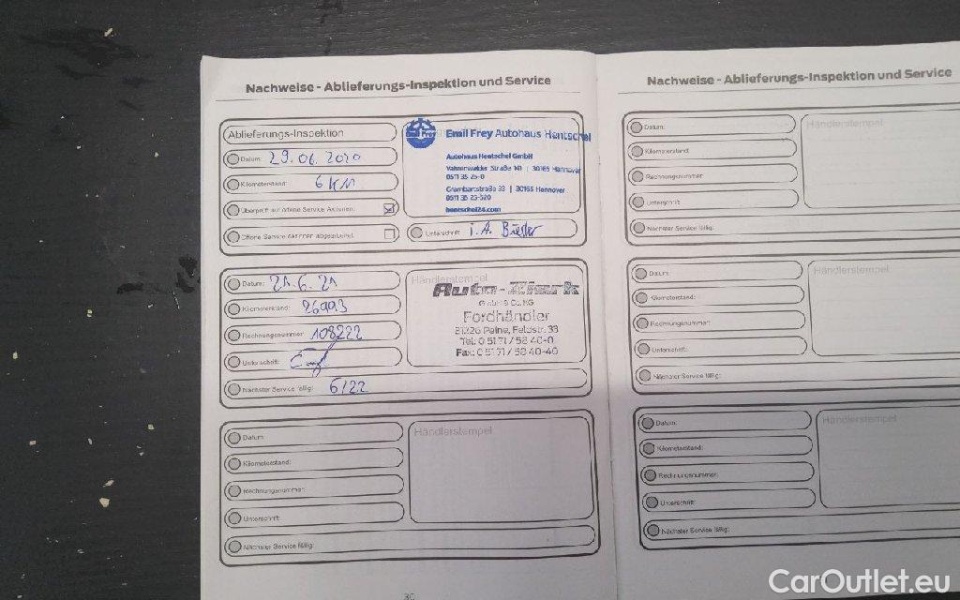 Nachweise - Ablieferungs-Inspektion und Service
Ablieferungs-Inspektion
Datum: 29.06.2020
Kilometerstand: 6 KM
Offene Service
Emil Frey
Emil Frey Autohaus Hentschel
Autohaus Hentschel GmbH
Vahrenwalder Straße 141 | 30165 Hannover
0511 35 25-0
30165 Hannover
0511 35 25-520
hentschel24.com
Unterschrift: i.A.
Datum: 21.6.21
Kilometerstand: 26993
Rechnungsnummer: 108222
Unterschrift:
Nächster Service fällig: 6/22
Händlerstempel
GmbH & Co. KG
Fordhändler
31226 Peine, Feldstr. 33
Tel: 0 51 71 / 58 40-0
Fax: 0 51 71 / 58 40-40
Datum:
Kilometerstand:
Rechnungsnummer:
Unterschrift:
Nächster Service fällig:
Händlerstempel
Nachweise - Ablieferungs-Inspektion und Service
Datum:
Kilometerstand:
Rechnungsnummer:
Unterschrift:
Nächster Service fällig:
Händlerstempel
Datum:
Kilometerstand:
Rechnungsnummer:
Unterschrift:
Nächster Service fällig:
Händlerstempel
Datum:
Kilometerstand:
Rechnungsnummer:
Unterschrift:
Nächster Service fällig:
Händlerstempel
CarOutlet.eu